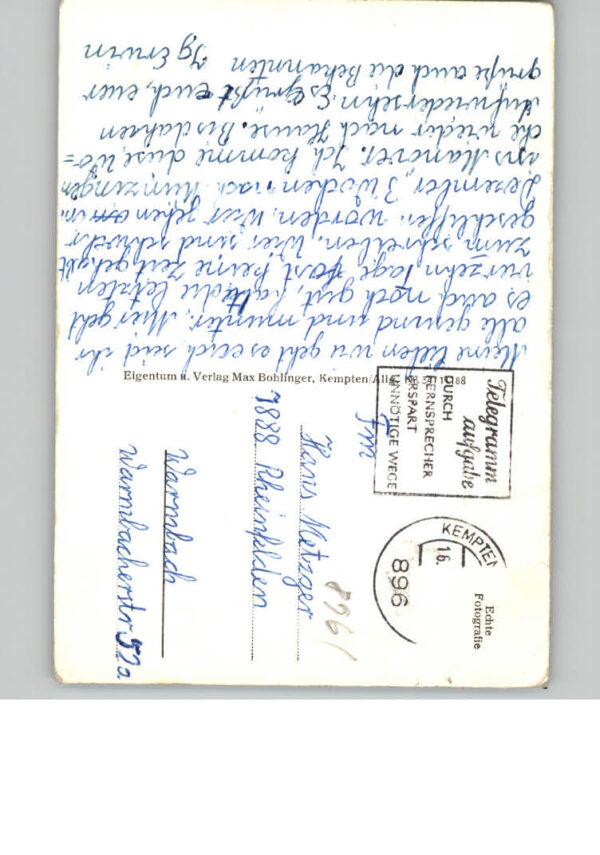 Meine lieben wie geht es euch seid ihr
alle gesund und munter. Mir geht
es auch noch gut, habe die letzten
vierzehn Tage fast keine Zeit gehabt
zum schreiben. Wier sind schwehr
geschliffen worden. Wier gehen im
Dezember 3 Wochen nach Münzingen
ins Manöver. Ich komme diese Wo=
che wieder nach Hause. Bis dahin
Aufwiedersehn. Es grüßt euch, euer
grüße auch die Bekannten Jg Erwin
Eigentum u. Verlag Max Bohlinger, Kempten/Allg.
Telegramm
aufgabe
DURCH
FERNSPRECHER
ERSPART
UNNÖTIGE WEGE
KEMPTEN
16.
896
Echte
Fotografie
Fm
Hans Metzger
7888 Rheinfelden
Warmbach
Warmbacherstr 52a
1968